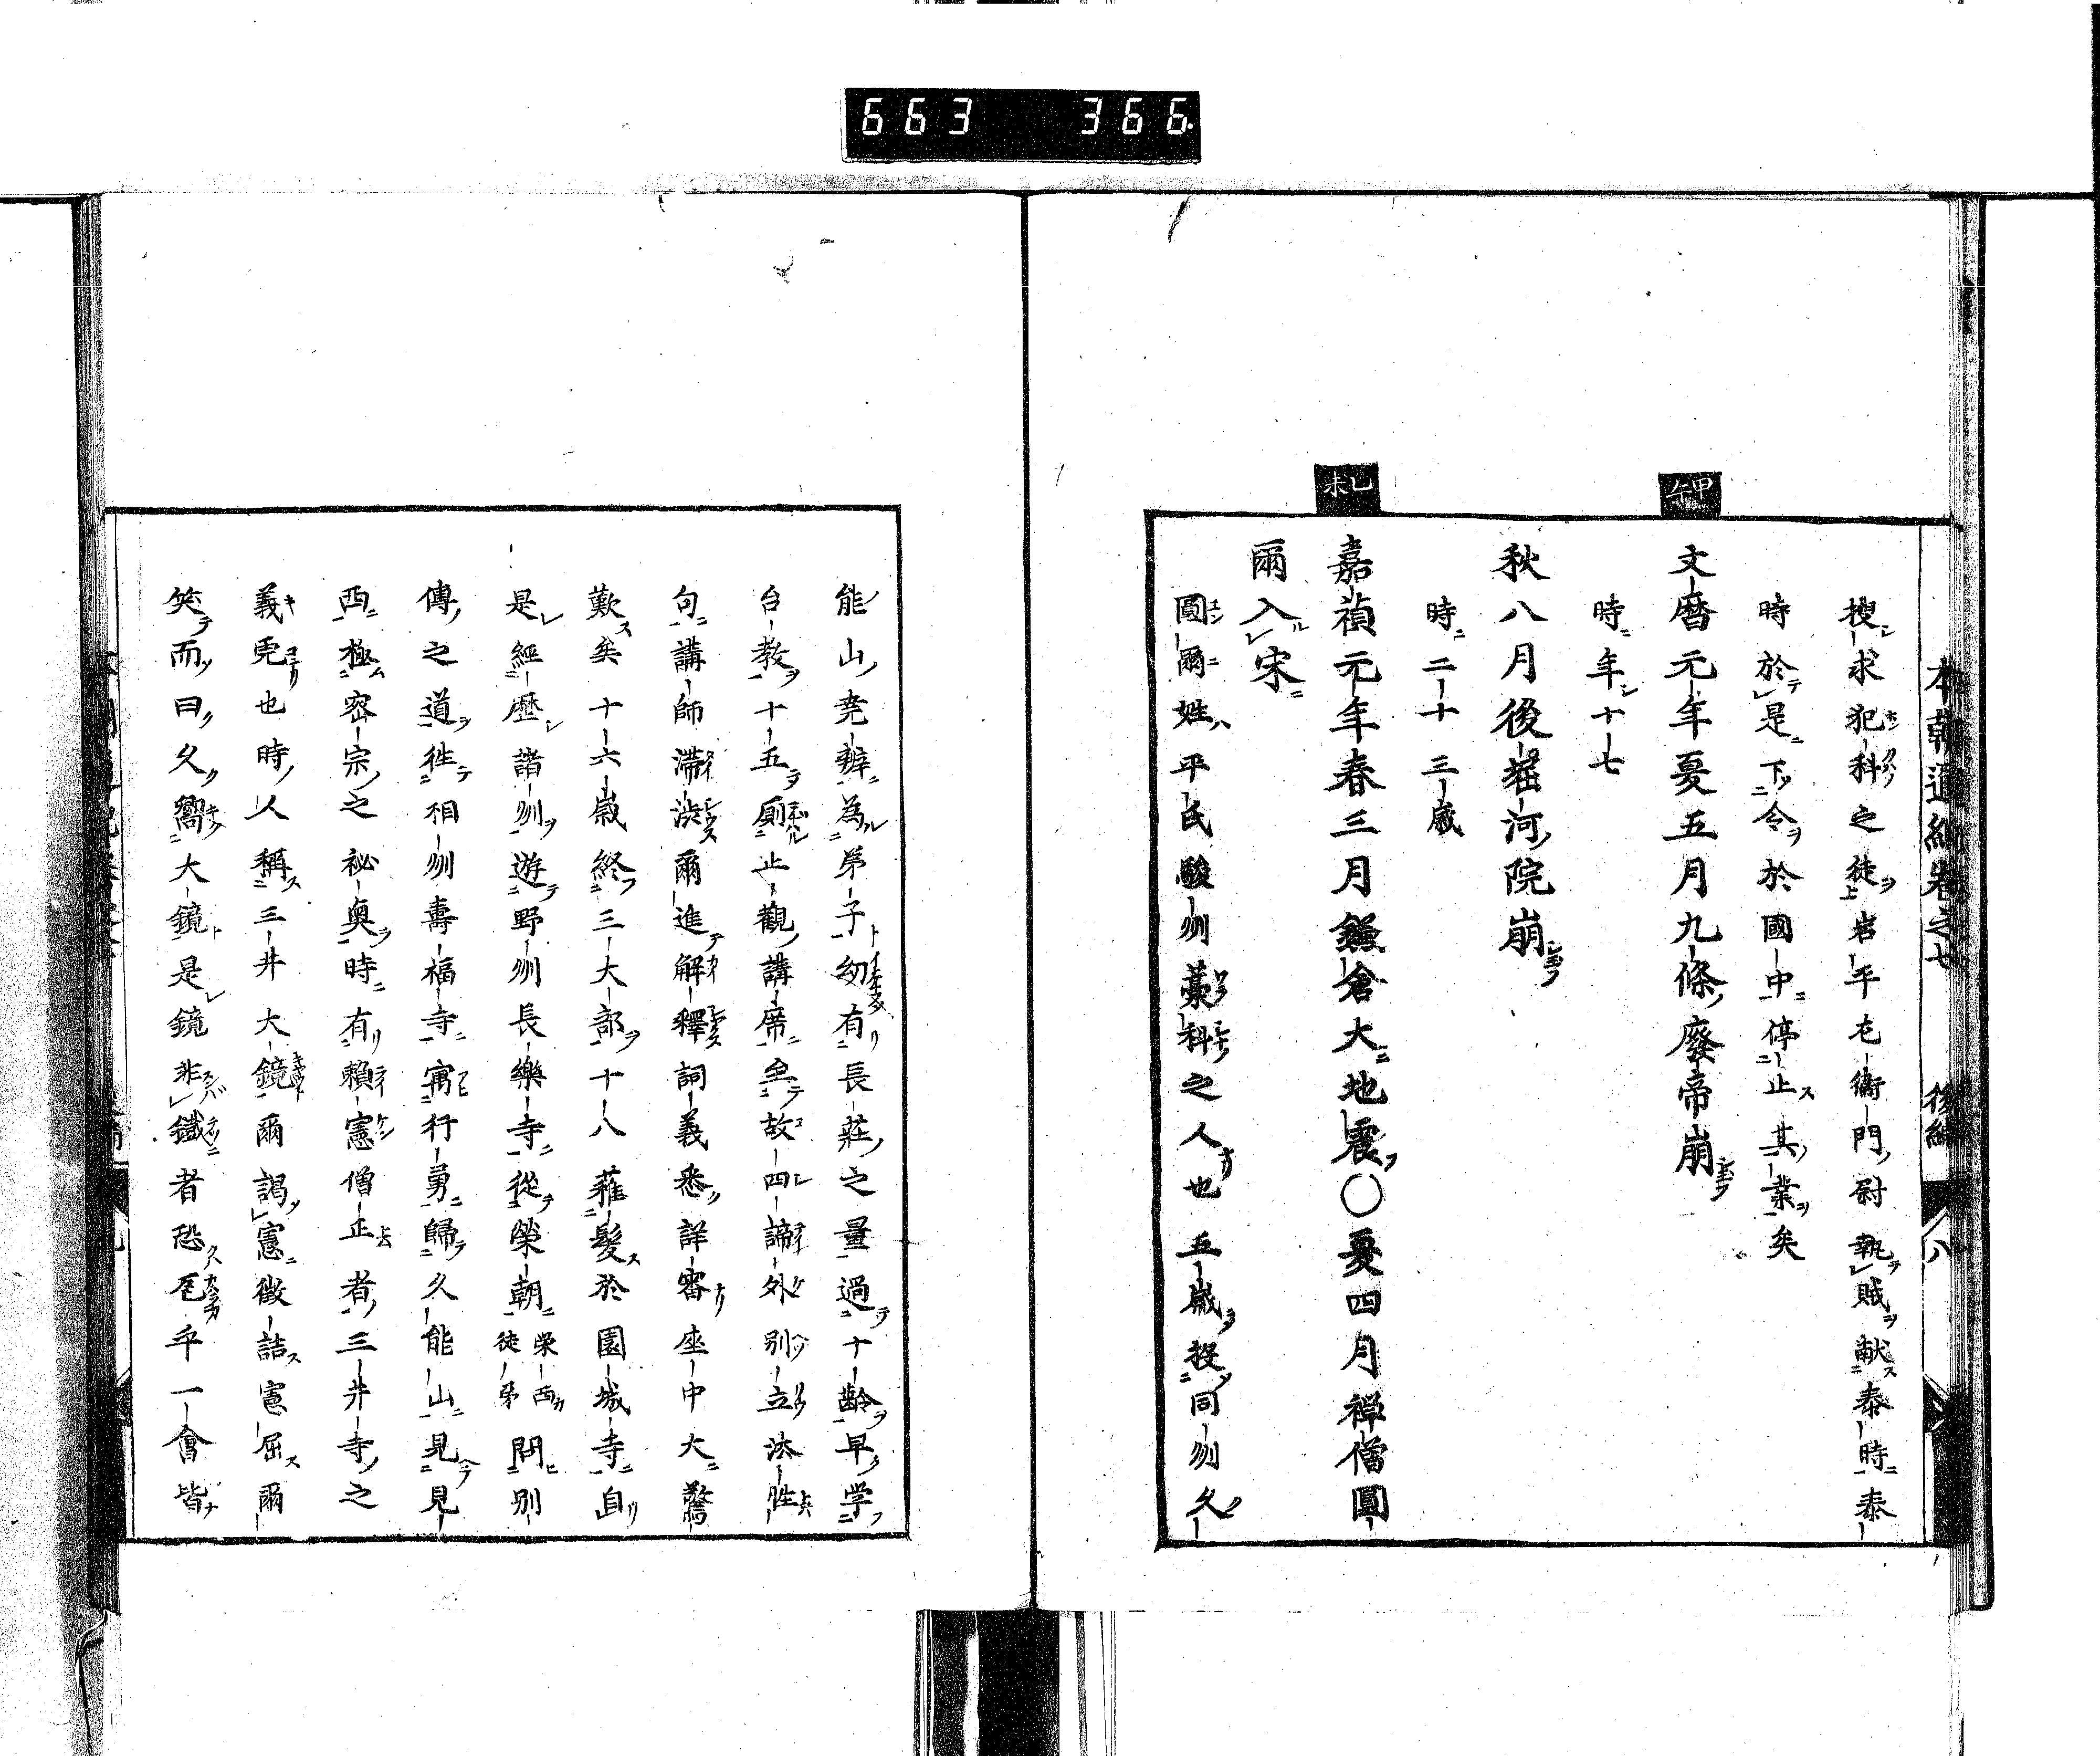 663 366
本朝通紀卷之七 後編 八
搜求犯科之徒岩平屯衞門尉執賊献泰時泰
時於是下令於國中停止其業矣
甲午
文曆元年夏五月九條廢帝崩
時年十七
秋八月後堀河院崩
時二十三歲
乙未
嘉禎元年春三月鎌倉大地震〇夏四月禅僧圓
爾入宋
圓爾姓平氏駿州藁科之人也五歲投同州久
能山尭辨為弟子幼有長莊之量過十齡早学
台教十五廁止觀講席至故四諦外別立法性
句講師滞渋爾進解釋詞義悉詳審座中大驚
歎矣十六歲終三大部十八薙髮於園城寺自
是經歷諸州遊野州長樂寺從榮朝榮西徒弟問別
傳之道徃相州壽福寺寓行勇歸久能山見見
西極密宗之秘奥時有賴憲僧正者三井寺之
義虎也時人稱三井大鏡爾謁憲徵詰憲屈爾
笑而曰久嚮大鏡是鏡非鐵者恐瓦乎一會皆